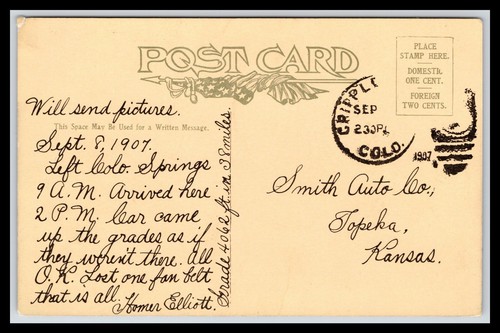 POST CARD
PLACE
STAMP HERE.
DOMESTIC
ONE CENT.
FOREIGN
TWO CENTS.
Will send pictures.
This Space May Be Used for a Written Message.
Sept. 8, 1907.
Left Colo. Springs
9 A.M. Arrived here
2 P.M. Car came
up the grades as if
they weren't there. All
O.K. Lost one fan belt
that is all.
Homer Elliott.
Grade 4062 ft. in 38 miles.
CRIPPL
SEP
230P
COLO.
1907
Smith Auto Co.,
Topeka,
Kansas.